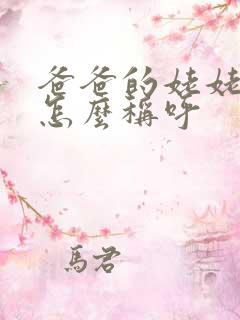 爸爸的姥姥
怎麼稱呼
馬君